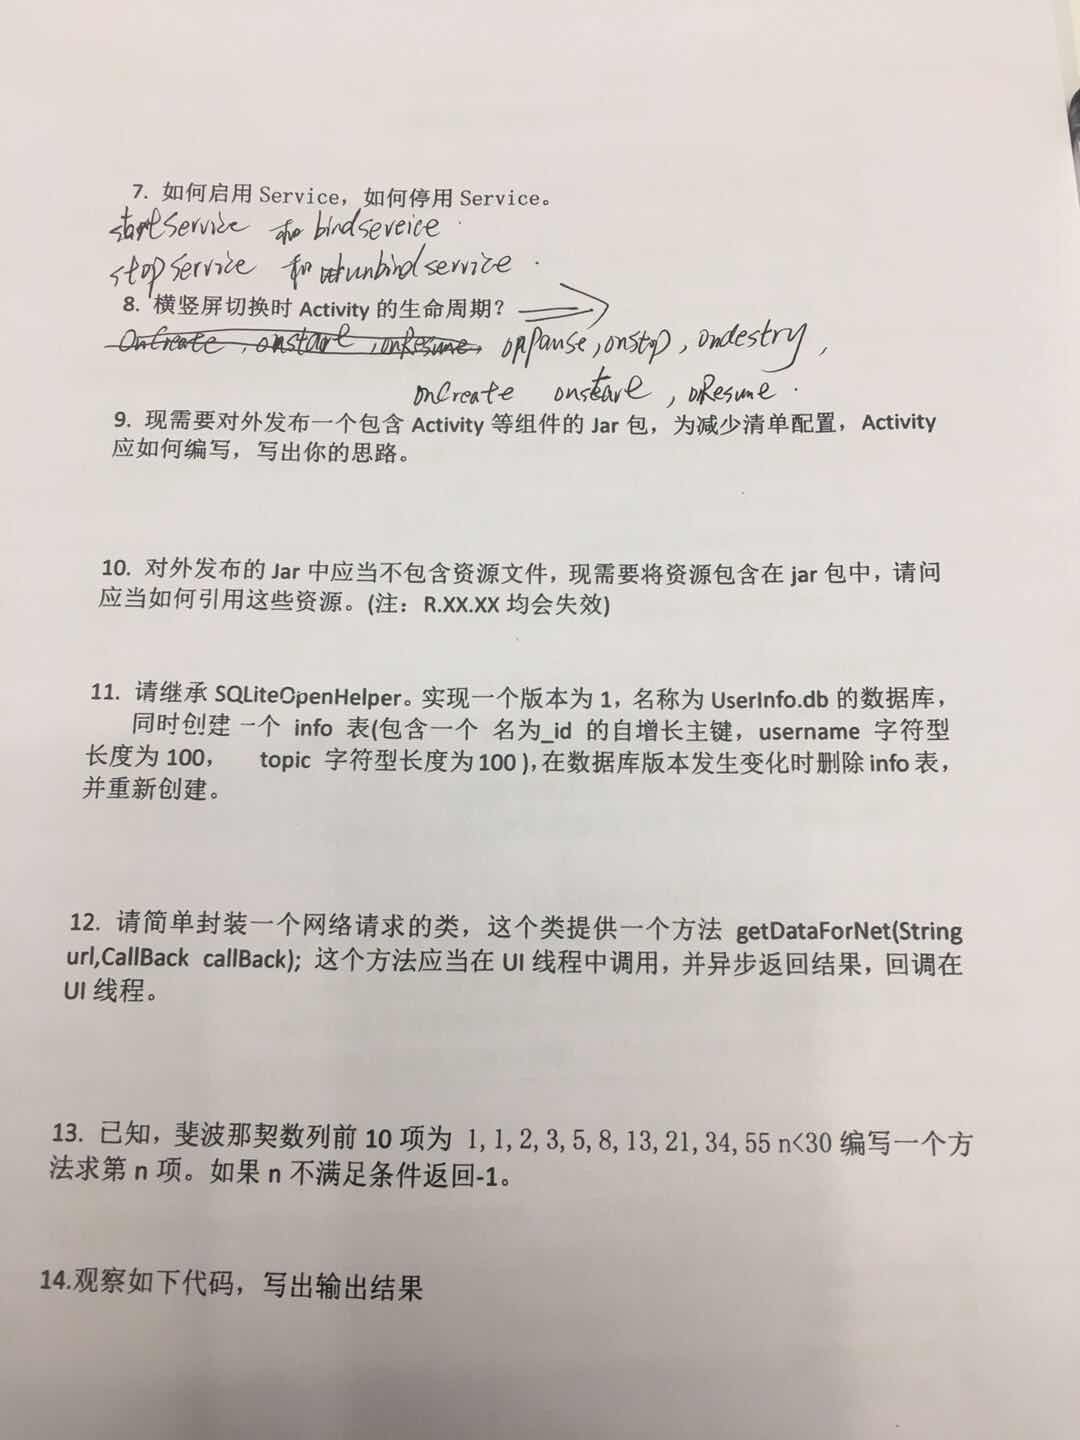 7. 如何启用 Service，如何停用 Service。
startService 和 bindsereice .
stopService 和 unbindservice .
8. 横竖屏切换时 Activity 的生命周期？
OnCreate, onstart, onResume, onPause, onstop, ondestry,
onCreate onstart, onResume .
9. 现需要对外发布一个包含 Activity 等组件的 Jar 包，为减少清单配置，Activity
应如何编写，写出你的思路。
10. 对外发布的 Jar 中应当不包含资源文件，现需要将资源包含在 jar 包中，请问
应当如何引用这些资源。(注：R.XX.XX 均会失效)
11. 请继承 SQLiteOpenHelper。实现一个版本为 1，名称为 UserInfo.db 的数据库，
同时创建一个 info 表(包含一个 名为_id 的自增长主键，username 字符型
长度为 100， topic 字符型长度为 100 ),在数据库版本发生变化时删除 info 表，
并重新创建。
12. 请简单封装一个网络请求的类，这个类提供一个方法 getDataForNet(String
url,CallBack callBack); 这个方法应当在 UI 线程中调用，并异步返回结果，回调在
UI 线程。
13. 已知，斐波那契数列前 10 项为 1,1,2,3,5,8,13,21,34,55 n<30 编写一个方
法求第 n 项。如果 n 不满足条件返回-1。
14.观察如下代码，写出输出结果